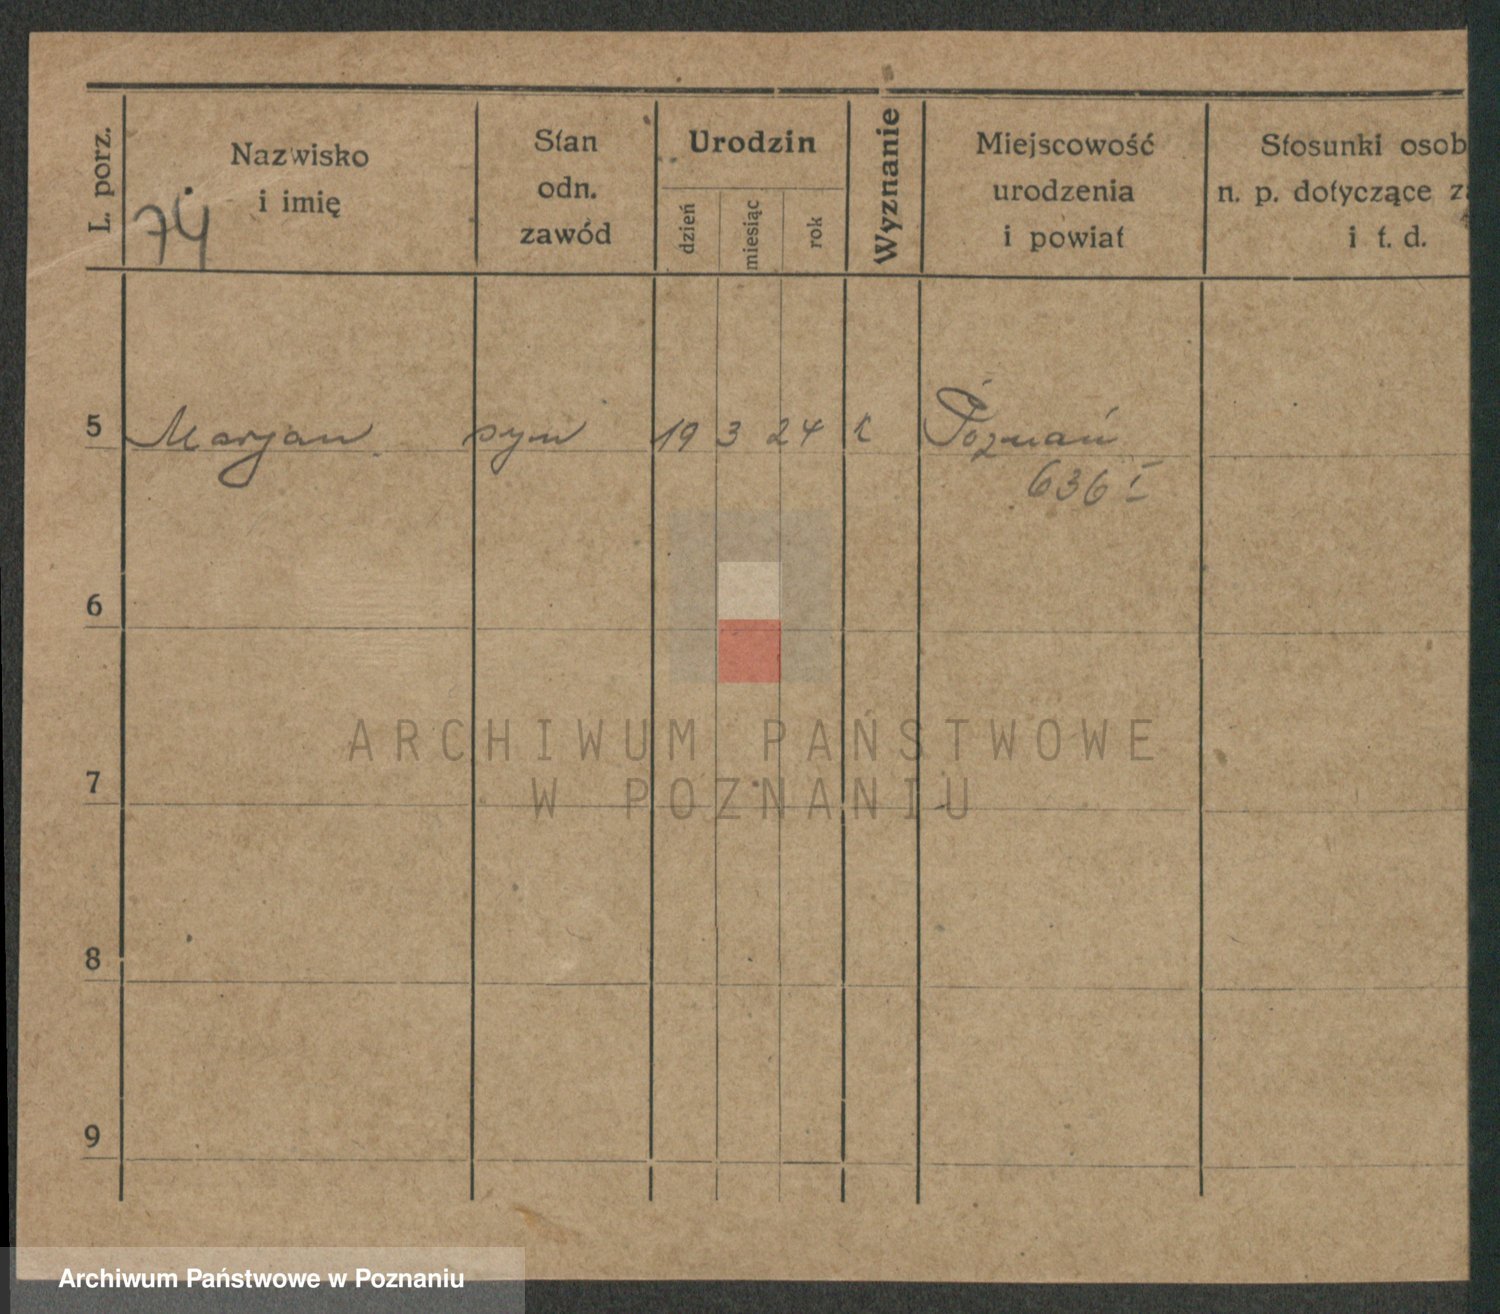 L. porz.
Nazwisko
i imię
74
Stan
odn.
zawód
Urodzin
dzień
miesiąc
rok
Wyznanie
Miejscowość
urodzenia
i powiat
Stosunki osob
n. p. dotyczące z
i t. d.
5 Maryan syn 19 3 24 k Poznań
636 I
6
7
8
9
ARCHIWUM PAŃSTWOWE
W POZNANIU
Archiwum Państwowe w Poznaniu